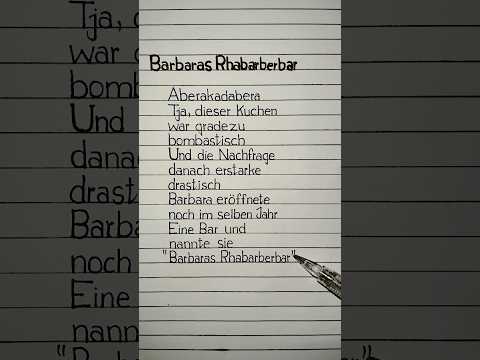 Barbaras Rhabarberbar
Aberakadabera
Tja, dieser Kuchen
war gradezu
bombastisch
Und die Nachfrage
danach erstarke
drastisch
Barbara eröffnete
noch im selben Jahr
Eine Bar und
nannte sie
"Barbaras Rhabarberbar"